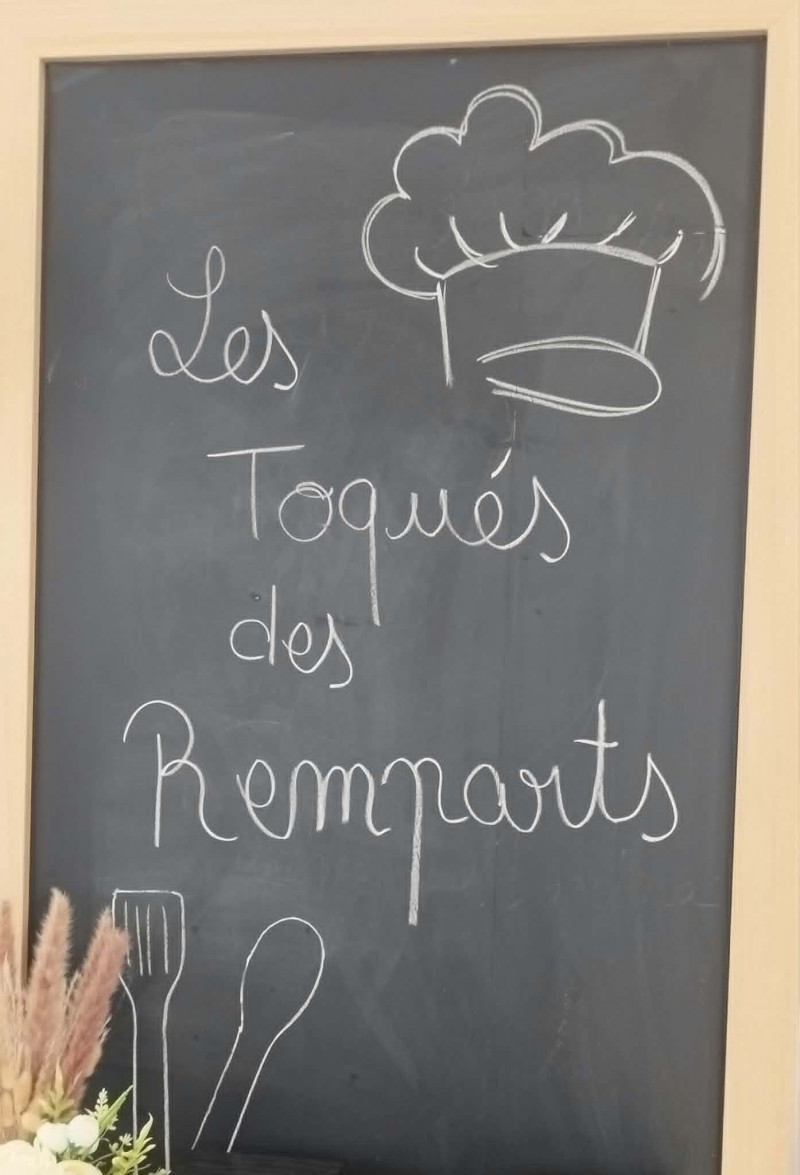 Les
Toqués
des
Remparts